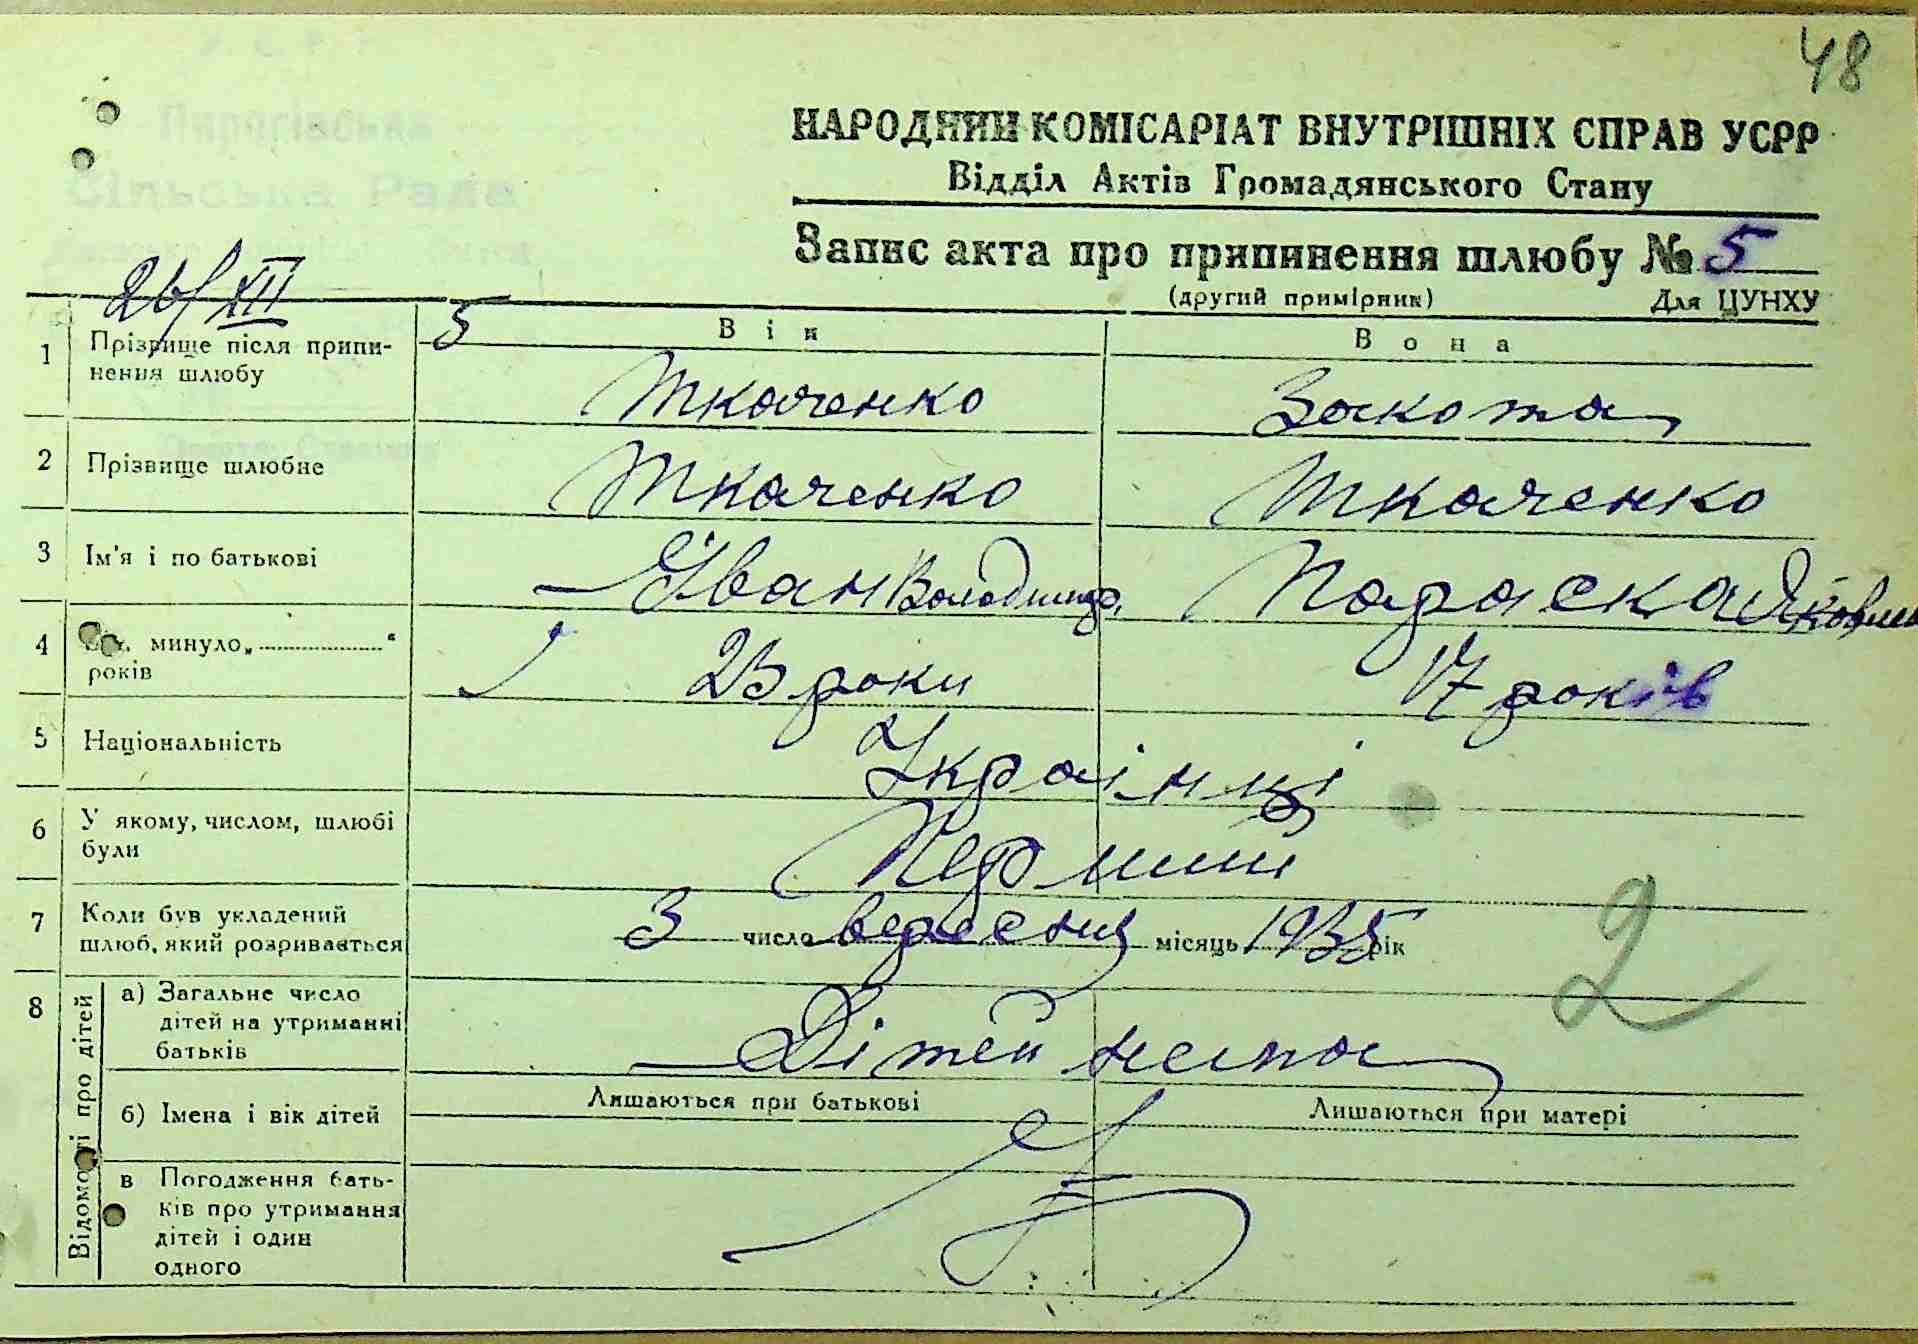 48
Пирогівська
Сільська Рада
НАРОДНИЙ КОМІСАРІАТ ВНУТРІШНІХ СПРАВ УСРР
Відділ Актів Громадянського Стану
Запис акта про припинення шлюбу № 5
(другий примірник) Для ЦУНХУ
26/XII 5
Він Вона
1 Прізвище після припи-
нення шлюбу Ткаченко Закота
2 Прізвище шлюбне Ткаченко Ткаченко
3 Ім'я і по батькові Іван Володимир. Параска Яковлев
4 минуло „ “
років 23 роки 17 років
5 Національність Українці
6 У якому, числом, шлюбі
були Перший
7 Коли був укладений
шлюб, який розривається 3 число вересня місяць 1935 рік
2
8 Відомості про дітей
а) Загальне число
дітей на утриманні
батьків Дітей нема
Лишаються при батькові Лишаються при матері
б) Імена і вік дітей
в Погодження бать-
ків про утримання
дітей і один
одного